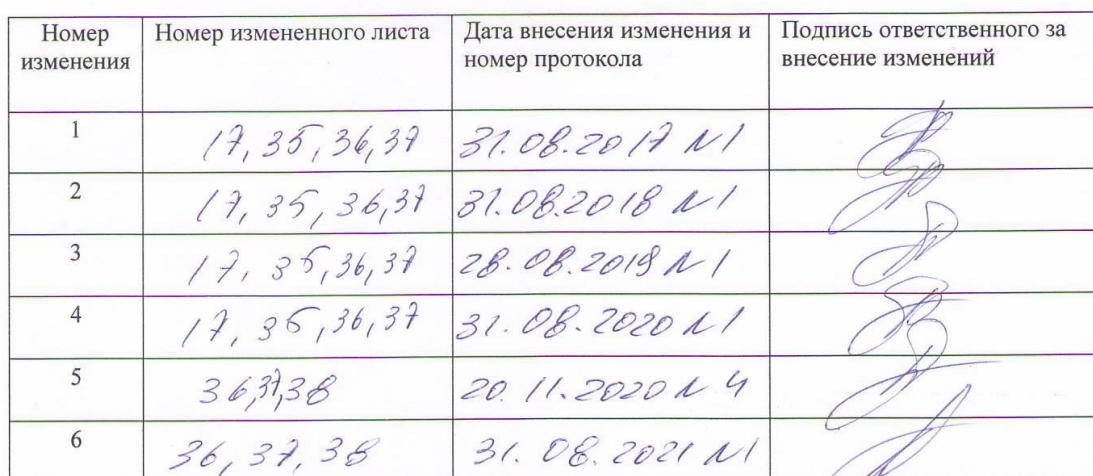 Номер изменения Номер измененного листа Дата внесения изменения и номер протокола Подпись ответственного за внесение изменений
1 17, 35, 36, 37 31.08.2017 N1
2 17, 35, 36, 37 31.08.2018 N1
3 17, 35, 36, 37 28.08.2019 N1
4 17, 35, 36, 37 31.08.2020 N1
5 36, 37, 38 20.11.2020 N 4
6 36, 37, 38 31.08.2021 N1